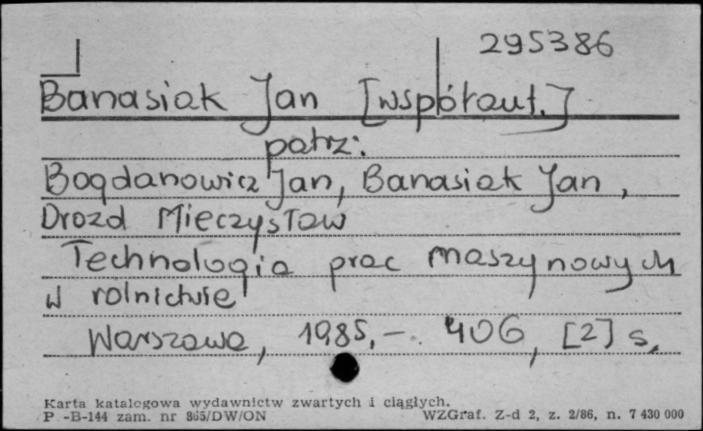 295386
Banasiak Jan [współaut.]
patrz:
Bogdanowicz Jan, Banasiak Jan,
Drozd Mieczysław
Technologia prac maszynowych
w rolnictwie
Warszawa, 1985, – 406, [2] s.
Karta katalogowa wydawnictw zwartych i ciągłych.
P.-B-144 zam. nr 865/DW/ON WZGraf. Z-d 2, z. 2/86, n. 7 430 000